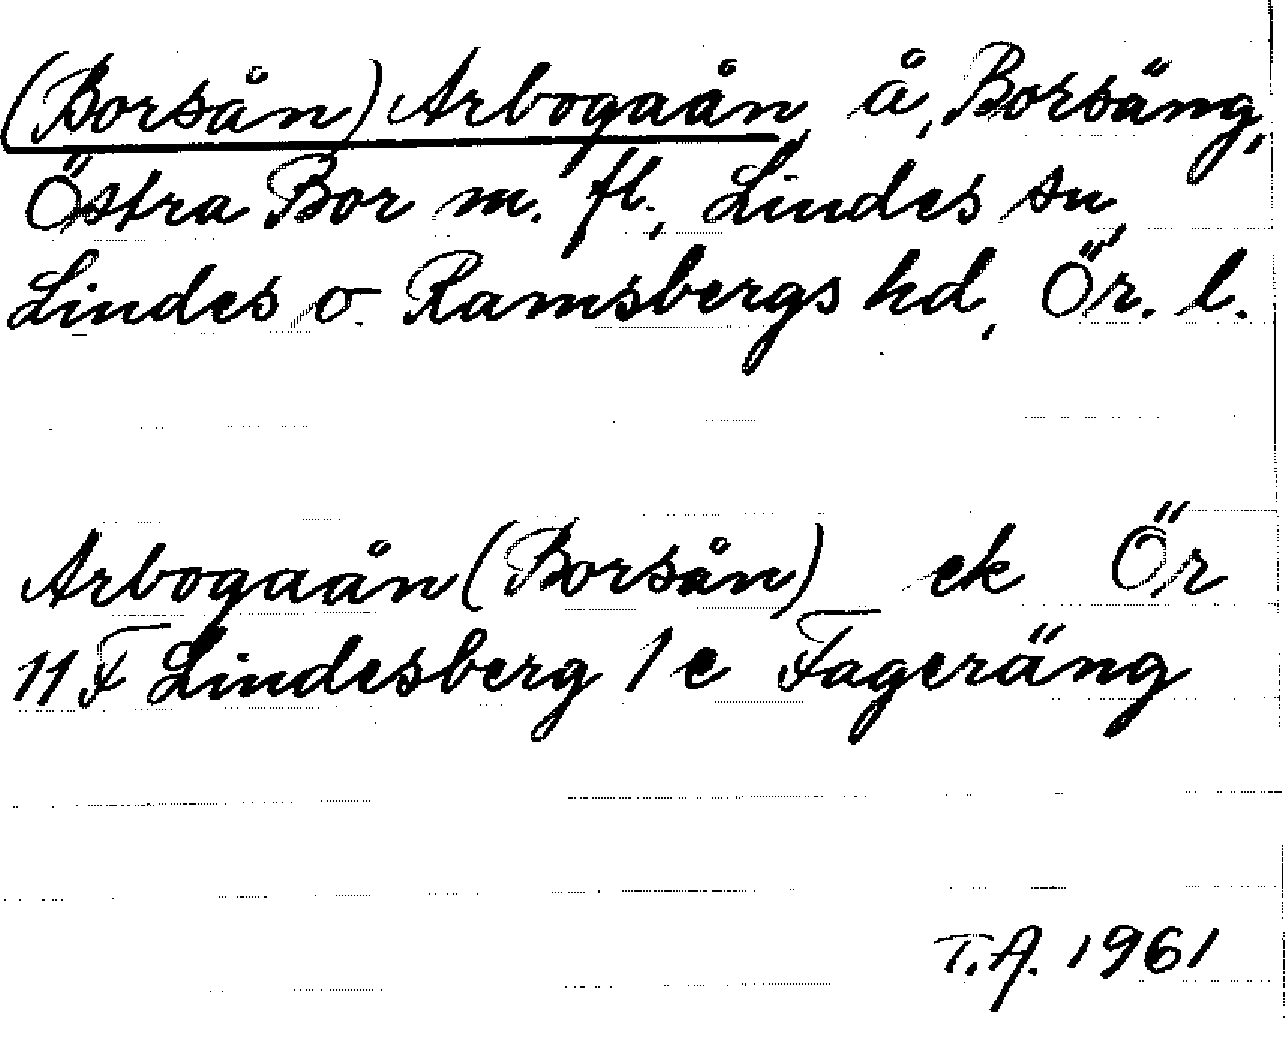 (Borsån) Arbogaån, å, Borsäng,
Östra Bor m. fl., Lindes sn,
Lindes o Ramsbergs hd, Ör. l.
Arbogaån (Borsån) ek Ör
11 F Lindesberg 1 e Fageräng
T.A. 1961